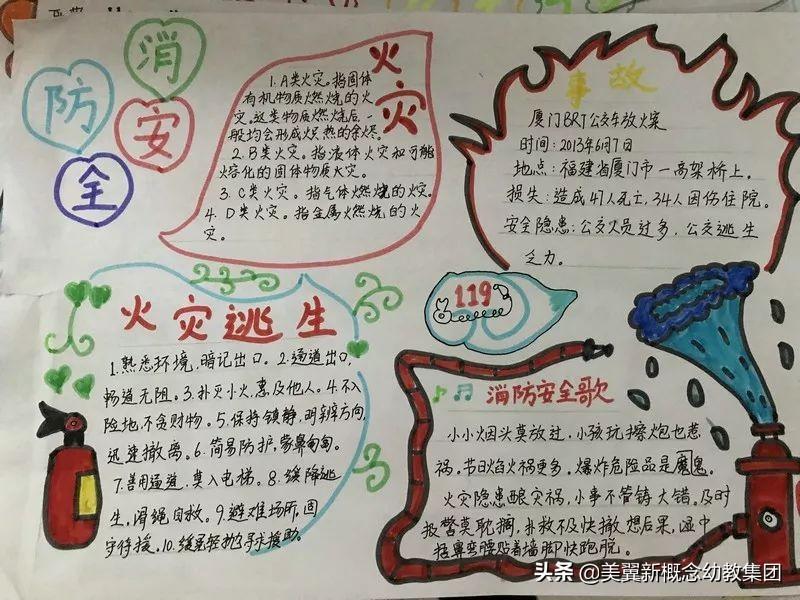 消
防
安
全
火灾
1. A类火灾。指固体
有机物质燃烧的火
灾。这类物质燃烧后一
般均会形成炽热的余烬。
2. B类火灾。指液体火灾和可能
熔化的固体物质火灾。
3. C类火灾。指气体燃烧的火灾。
4. D类火灾。指金属火燃烧的火
灾。
事故
厦门BRT公交车放火案
时间:2013年6月7日
地点:福建省厦门市一高架桥上。
损失:造成47人死亡,34人因伤住院。
安全隐患:公交人员过多,公交逃生
乏力。
火灾逃生
1.熟悉环境,暗记出口。2.通道出口,
畅通无阻。3.扑灭小火,惠及他人。4.不入
险地,不贪财物。5.保持镇静,明辨方向,
迅速撤离。6.简易防护,蒙鼻匍匐。
7.善用通道,莫入电梯。8.缓降逃
生,滑绳自救。9.避难场所,固
守待援。10.缓晃轻抛寻求援助。
119
消防安全歌
小小烟头莫放过,小孩玩擦炮也惹
祸。节日焰火祸更多。爆炸危险品是魔鬼。
火灾隐患酿灾祸,小事不管铸大错。及时
报警莫耽搁,扑救不及快撤想后果,湿巾
捂鼻弯腰贴着墙脚快跑脱。
头条 @美翼新概念幼教集团